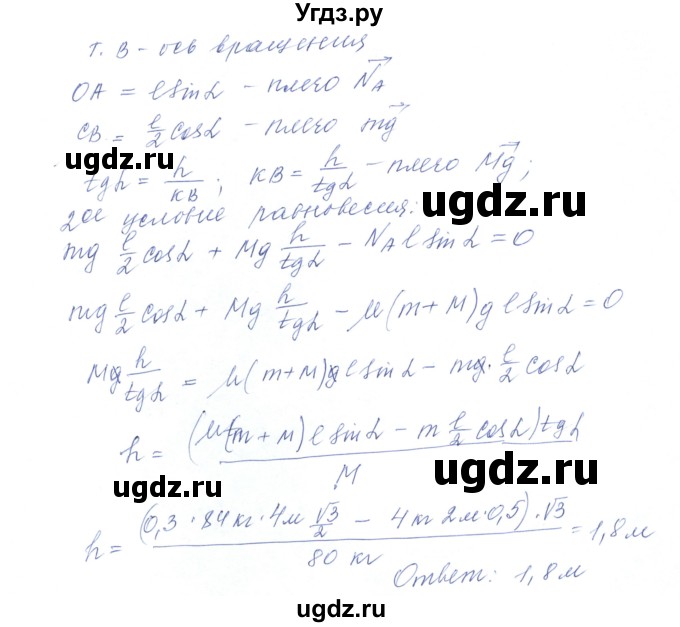 Угдз.ру
т. В - ось вращения
OA = ℓ sin α - плечо N⃗_A
CB = ℓ/2 cos α - плечо mg⃗
ugdz.ru
tg α = h/KB ; KB = h/tg α - плечо Mg⃗ ;
ugdz.ru
2ое условие равновесия:
mg ℓ/2 cos α + Mg h/tg α - N_A ℓ sin α = 0
mg ℓ/2 cos α + Mg h/tg α - μ(m+M)g ℓ sin α = 0
Mg h/tg α = μ(m+M)gℓ sin α - mg · ℓ/2 cos α
h = (μ(m+M)ℓ sin α - m ℓ/2 cos α) tg α / M
ugdz.ru
ugdz.ru
h = (0,3 · 84 кг · 4м √3/2 - 4 кг 2м · 0,5) · √3 / 80 кг = 1,8 м
Ответ: 1,8 м
ugdz.ru
ugdz.ru